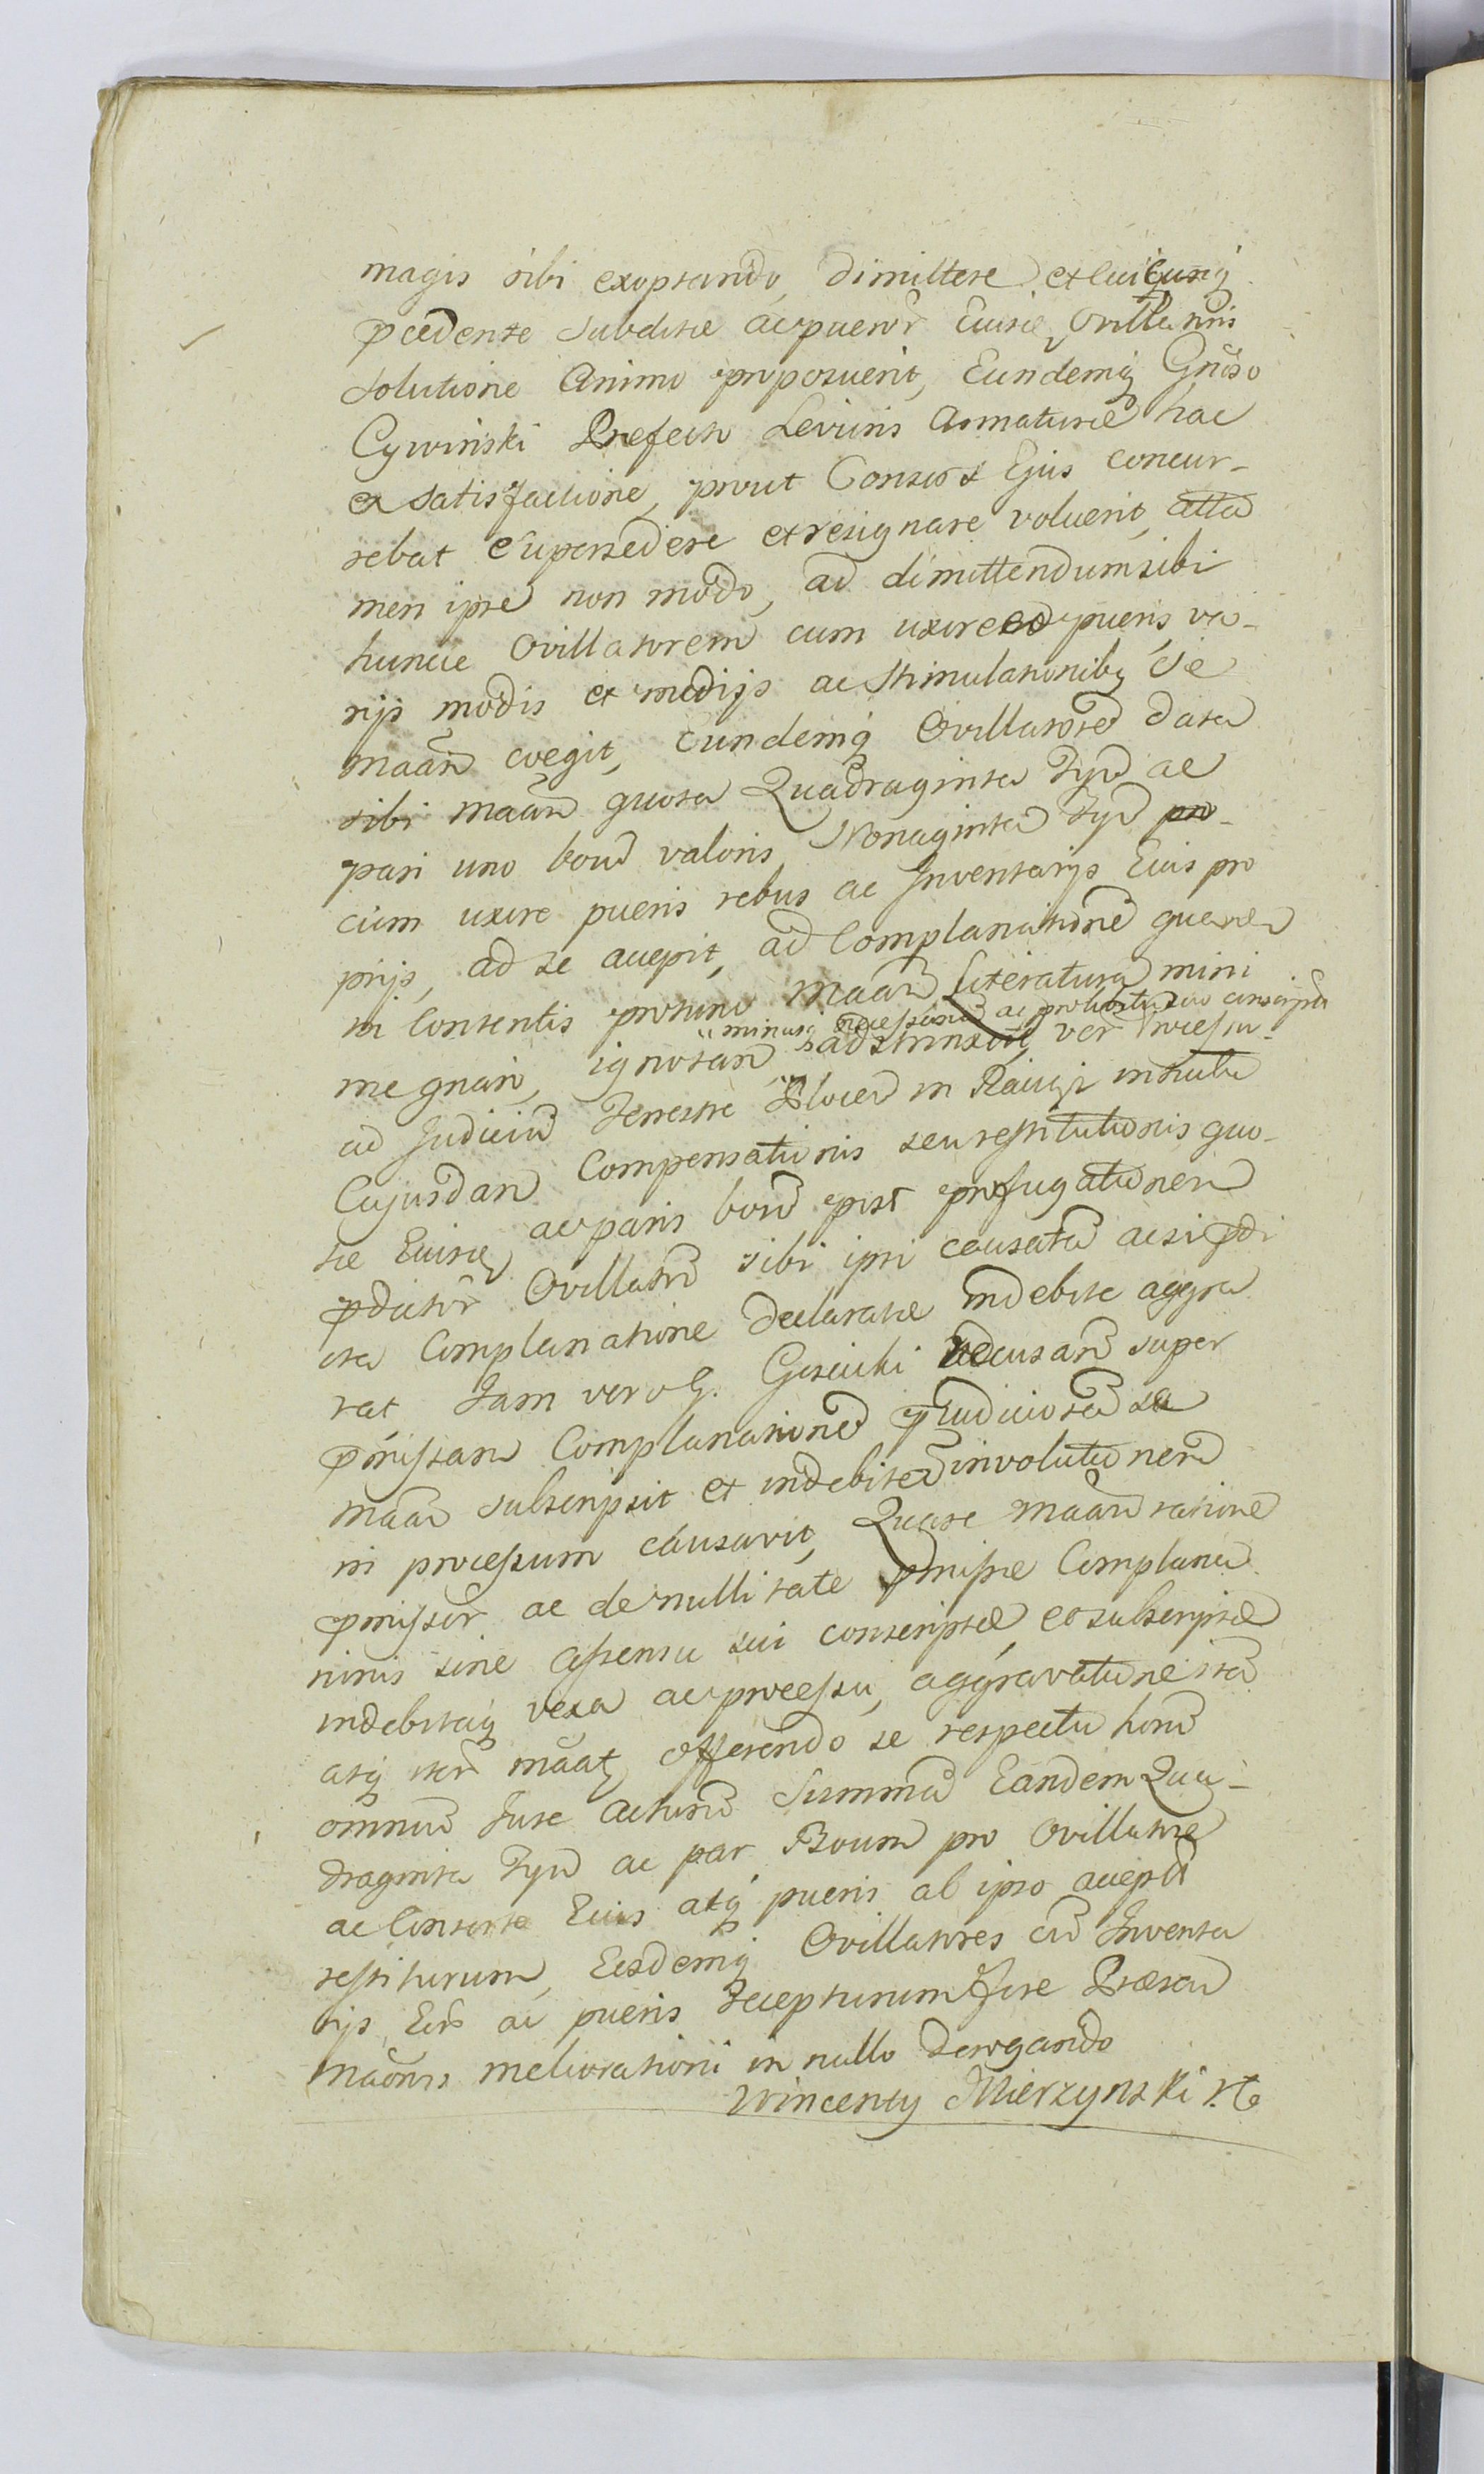 magis sibi exoptando, dimittere et cuicunq
pcedente subditæ ac pueror̃ Eius Ovillatoris
solutione Animo proposuerit, Eundemq Gñoso
Cywinski Præfecto Levioris Armaturæ hac
ex satisfactione, prout Consors Ejus concur-
rebat supersedere et resignare voluerit, atta
men ipse non modo, ad dimittendum sibi
huncce Ovillatorem cum uxore et pueris, va-
rijs modis et medijs ac stimulationibq se
Maañ coegit, Eundemq Ovillatorē data
sibi Maañ quota Quadraginta Tyñ ac
pari uno boum valoris Nonaginta Tyñ
cum uxore pueris rebus ac Inventarijs Eius pro
prijs, ad se accepit, ad Complanationē
in Contentis prorsus Maañ Literatura mini
me gnañ, ignotañ, minusq necessariã ac pro libitu suo conscriptã adstrinxit, ver Processu
ad Judiciũ Terrestre Plocen in Raciąż intitula
Cujusdam Compensationis seu restitutionis quo-
tæ Eius ac paris boũ post profugationem
pdictor̃ Ovillator̃ sibi ipsi causatã ac si pdi
cta Complanatione declaratæ indebite aggra
vat Jam vero G. Gościcki accusatũ super
pmissam Complanationē præjudiciosã se
Maañ subscripsit et indebitã involutionem
in processum causavit, Quare Maañ ratione
pmissor̃ ac de nullitate pmissæ Complana
tionis sine assensu sui conscriptæ, et subscriptæ
indebitaq vexa ac processu, aggravatione itã
atq iter̃ Maat, offerendo se respectu horũ
omniũ Jure acturũ Summã Eandem Qua-
draginta Tyñ ac par Boum pro Ovillatore
ac Consorte Eius atq pueris ab ipso acceptã
restiturum, Eosdemq Ovillatores cũ Inventa
rijs Eor̃ ac pueris recepturum fore Præsen
Maõnis meliorationi in nullo derogando
Wincenty Mierzynski